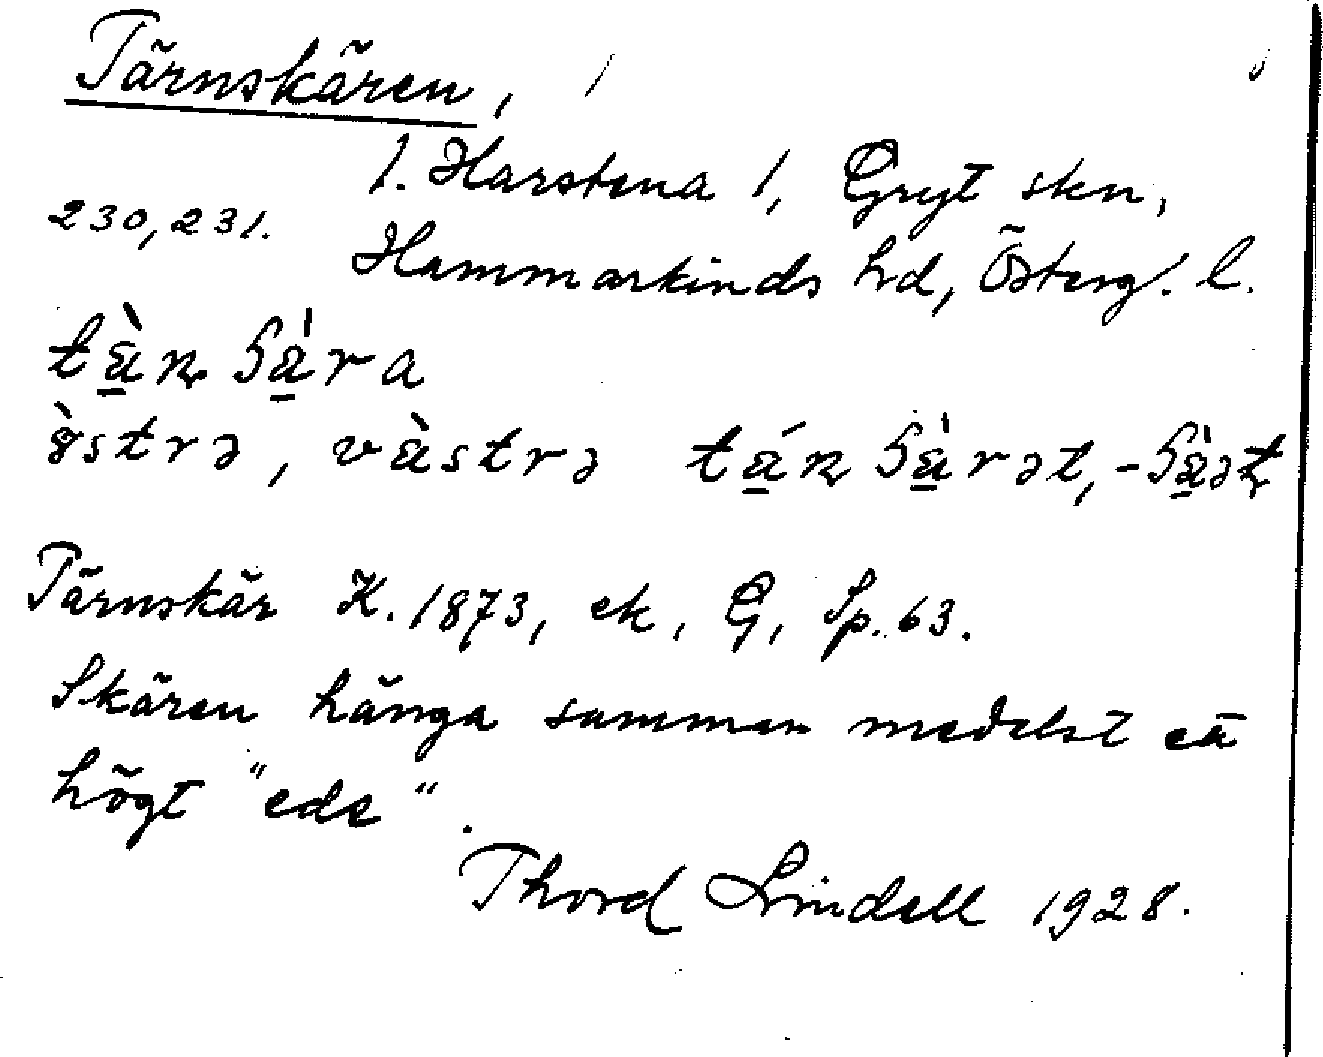 Tärnskären,
1. Harstena 1, Gryt skn,
230, 231.
Hammarkinds hd, Österg. l.
tä̀ɳ ʃä̀ra
ö̀strə, vä̀strə tä́ɳ ʃä̀rət, -ʃä̀ət
Tärnskär K. 1873, ek, G, Sp. 63.
Skären hänga samman medelst ett
högt "ede".
Thord Lindell 1928.